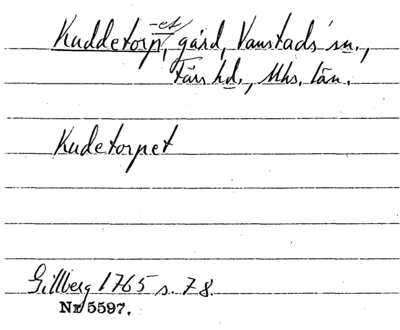 Kuddetorp, -et gård, Vanstads sn.,
Färs hd., Mhs. län.
Kudetorpet
Gillberg 1765 s. 78.
Nr 5597.